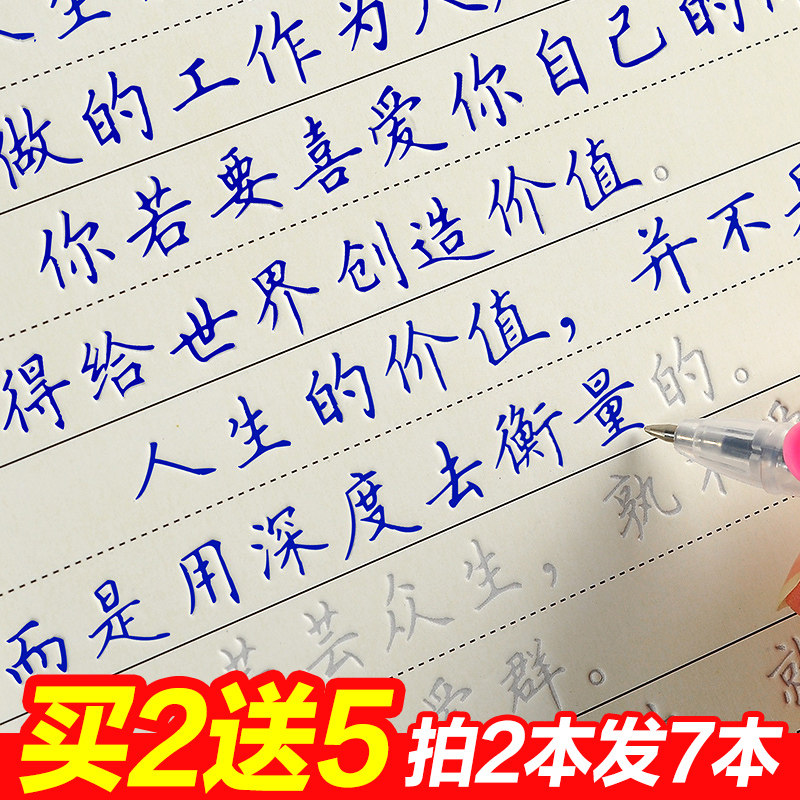 人生
做的工作为人
你若要喜爱你自己的
得给世界创造价值。
人生的价值，并不是
而是用深度去衡量的。
芸芸众生，孰不
爱群。
买2送5 拍2本发7本